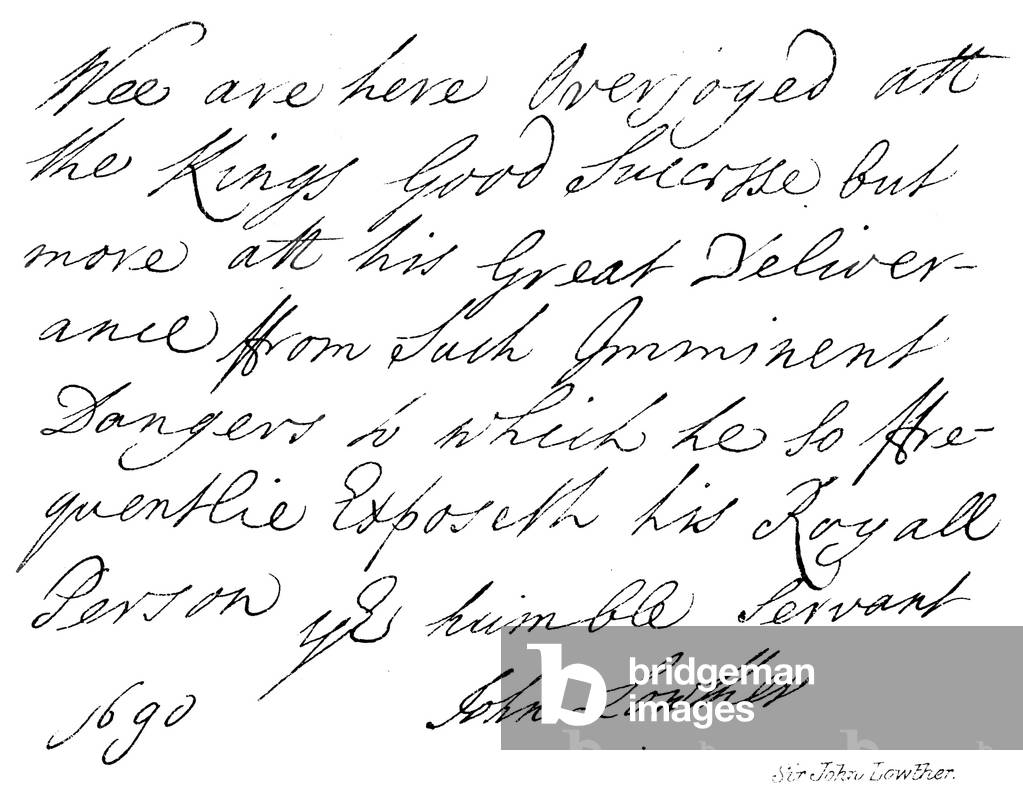 Wee are here Overjoyed att
the Kings Good Successe but
more att his Great Deliver-
ance ffrom Such Imminent
Dangers to which he So ffre-
quentlie Exposeth his Royall
Person ye humble Servant
1690 John Lowther
bridgeman
images
Sir John Lowther.